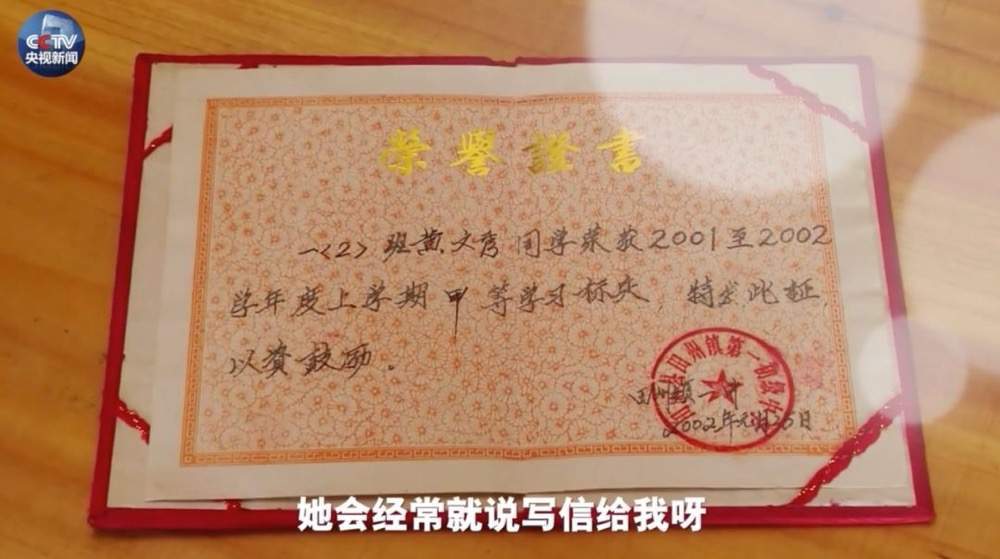 CCTV
央视新闻
榮譽證書
一〈2〉班黄文秀同学荣获2001至2002
学年度上学期甲等学习标兵,特发此证,
以资鼓励。
田州镇一中
2002年元月25日
县田州镇第一初级中
她会经常就说写信给我呀